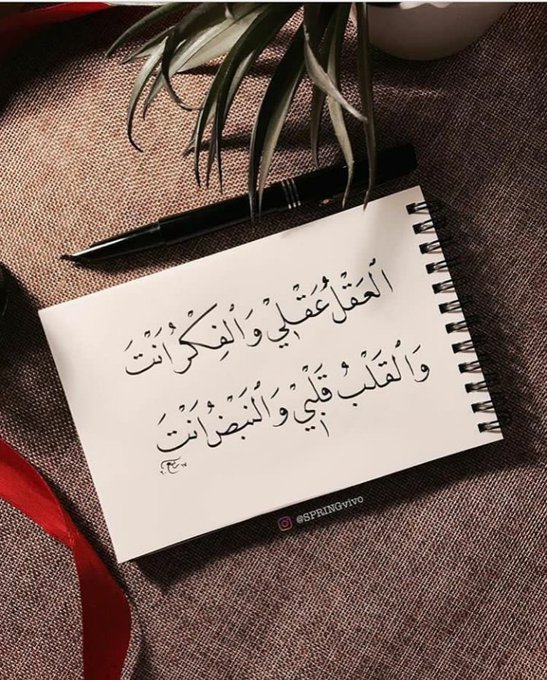 اَلعَقْلُ عَقْلِيْ وَالفِكْرُ اَنْتَ
وَالقَلْبُ قَلْبِيْ وَالنَبْضُ اَنْتَ
@SPRINGvivo